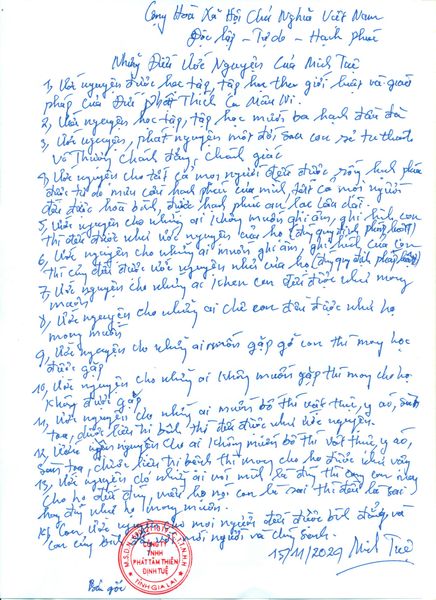 Cộng Hoà Xã Hội Chủ Nghĩa Việt Nam
Độc lập - Tự do - Hạnh phúc
Những Điều Ước Nguyện Của Minh Tuệ
1, Ước nguyện được học tập, tập học theo giới luật và giáo
pháp của Đức Phật Thích Ca Mâu Ni.
2, Ước nguyện học tập, tập học mười ba hạnh đầu đà
3, Ước nguyện, phát nguyện một đời sau con sẽ tu thành
Vô Thượng Chánh đẳng, Chánh giác
4, Ước nguyện cho tất cả mọi người đều được sống hạnh phúc
được tự do mưu cầu hạnh phúc của mình, tất cả mọi người
đều được hoà bình, được hạnh phúc an lạc lâu dài.
5, Ước nguyện cho những ai không muốn ghi âm, ghi hình con
thì đều được như ước nguyện của họ (đúng quy định pháp luật)
6, Ước nguyện cho những ai muốn ghi âm, ghi hình của con
thì cũng đều được ước nguyện như của họ (đúng quy định pháp luật)
7, Ước nguyện cho những ai khen con đều được như mong
muốn
8, Ước nguyện cho những ai chê con đều được như họ
mong muốn
9, Ước nguyện cho những ai muốn gặp gỡ con thì mong họ
được gặp
10, Ước nguyện cho những ai không muốn gặp thì mong cho họ
không được gặp
11, Ước nguyện cho những ai muốn bố thí vật thực, y áo, sàng
toạ, dược liệu trị bệnh thì đều được như ước nguyện.
12, Ước nguyện cho ai không muốn bố thí vật thực, y áo,
sàng toạ, dược liệu trị bệnh thì mong cho họ được như vậy
13, Ước nguyện cho những ai nói mình là đúng thì
cho họ đều đúng, nếu họ nói con là sai thì đều là sai
hay đúng như họ mong muốn.
14, Con ước nguyện cho mọi người đều được bình đẳng và
con cũng bình đẳng với mọi người và chúng sanh.
15/11/2024 Minh Tuệ
CÔNG TY
TNHH
PHÁT TÂM THIỀN
ĐỊNH TUỆ
T.GIA LAI
Bản gốc